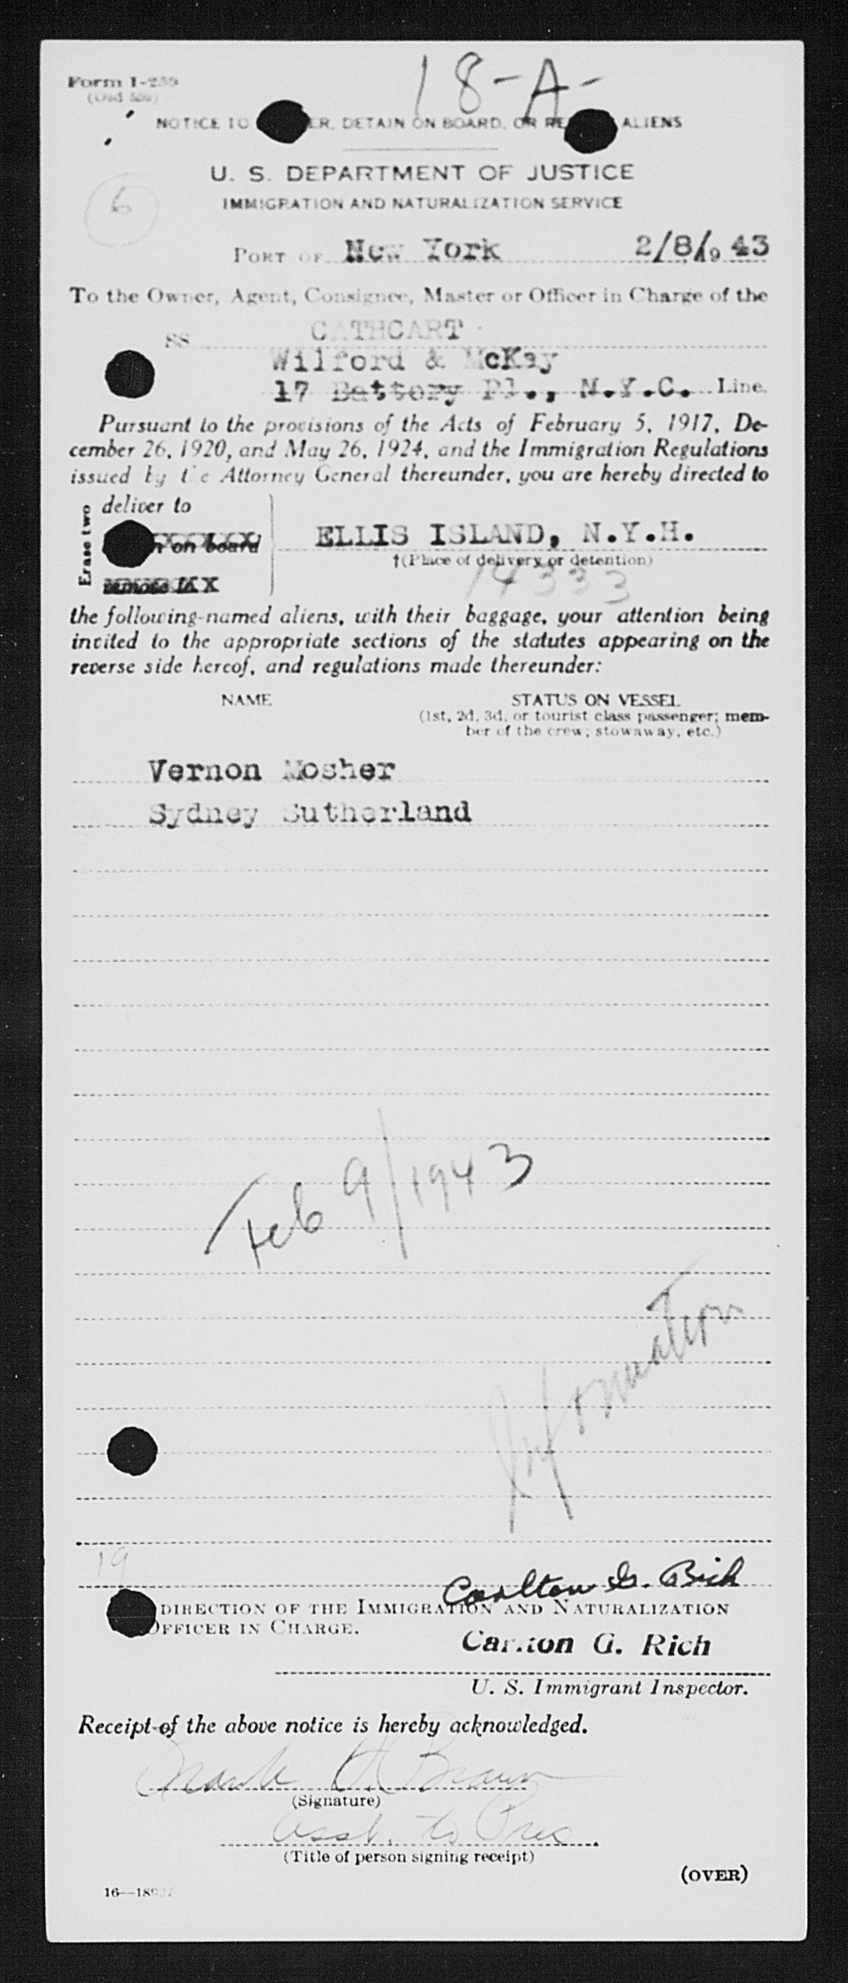 Form I-259
(Old 509)
18-A-
NOTICE TO ER, DETAIN ON BOARD, OR RE ALIENS
U. S. DEPARTMENT OF JUSTICE
IMMIGRATION AND NATURALIZATION SERVICE
6
PORT OF New York 2/8/19 43
To the Owner, Agent, Consignee, Master or Officer in Charge of the
SS CATHCART
Wilford & McKay
17 Battery Pl., N.Y.C. Line.
Pursuant to the provisions of the Acts of February 5, 1917, De-
cember 26, 1920, and May 26, 1924, and the Immigration Regulations
issued by the Attorney General thereunder, you are hereby directed to
Erase two
deliver to
n on board
ELLIS ISLAND, N.Y.H.
†(Place of delivery or detention)
14333
the following-named aliens, with their baggage, your attention being
invited to the appropriate sections of the statutes appearing on the
reverse side hereof, and regulations made thereunder:
NAME STATUS ON VESSEL
(1st, 2d, 3d, or tourist class passenger; mem-
ber of the crew; stowaway, etc.)
Vernon Mosher
Sydney Sutherland
Feb 9/1943
Information
19
Carlton G. Rich
DIRECTION OF THE IMMIGRATION AND NATURALIZATION
OFFICER IN CHARGE.
Carlton G. Rich
U. S. Immigrant Inspector.
Receipt of the above notice is hereby acknowledged.
(Signature)
Asst. to Pres
(Title of person signing receipt)
(OVER)